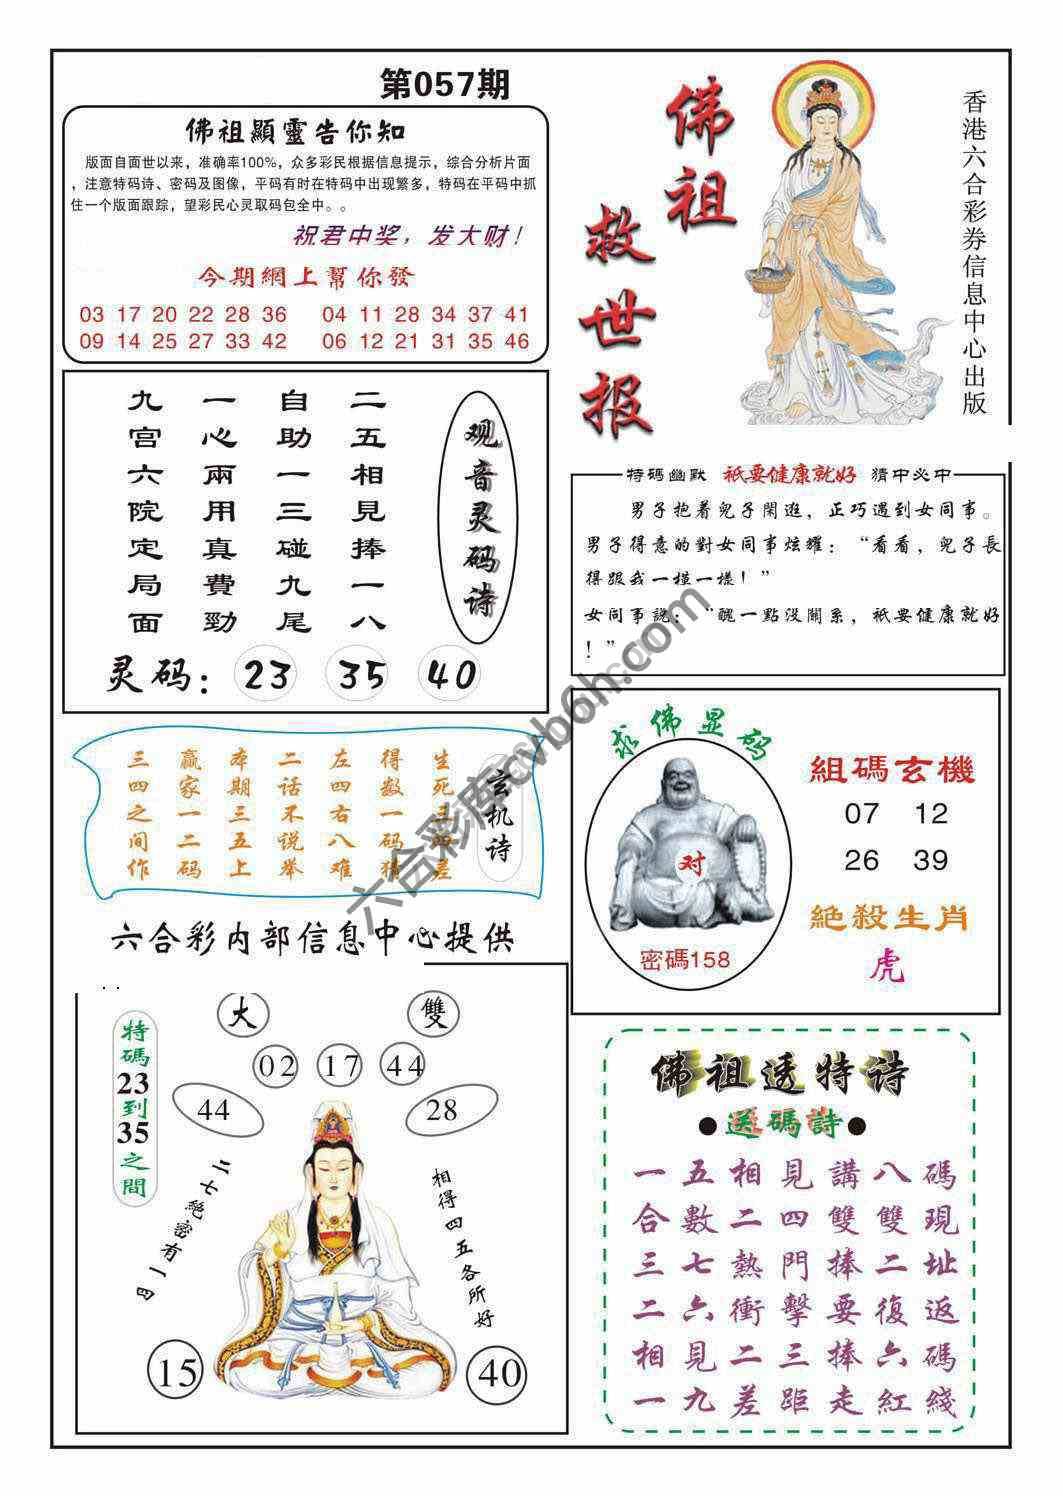 第057期
佛祖顯靈告你知
版面自面世以来，准确率100%，众多彩民根据信息提示，综合分析片面
，注意特码诗、密码及图像，平码有时在特码中出现繁多，特码在平码中抓
住一个版面跟踪，望彩民心灵取码包全中。。
祝君中奖，发大财！
今期網上幫你發
03 17 20 22 28 36 04 11 28 34 37 41
09 14 25 27 33 42 06 12 21 31 35 46
佛祖
救世报
香港六合彩券信息中心出版
观音灵码诗
二五相見捧一八
自助一三碰九尾
一心兩用真費勁
九宫六院定局面
灵码：23 35 40
特碼幽默 祇要健康就好 猜中必中
男子抱着兒子閑逛，正巧遇到女同事。
男子得意的對女同事炫耀：“看看，兒子長
得跟我一模一樣！”
女同事説：“醜一點没關系，祇要健康就好
！”
玄机诗
生死三四差
得数一码猜
左四右八难
二话不说举
本期三五上
赢家一二码
三四之间作
求佛显码
对
密碼158
組碼玄機
07 12
26 39
絕殺生肖
虎
六合彩内部信息中心提供
大 雙
02 17 44
44 28
特碼23到35之間
二七絕密有一四
相得四五各所好
15 40
佛祖透特诗
●送碼詩●
一五相見講八碼
合數二四雙雙現
三七熱門捧二址
二六衝擊要復返
相見二三捧六碼
一九差距走紅綫
六合彩库cvboh.com